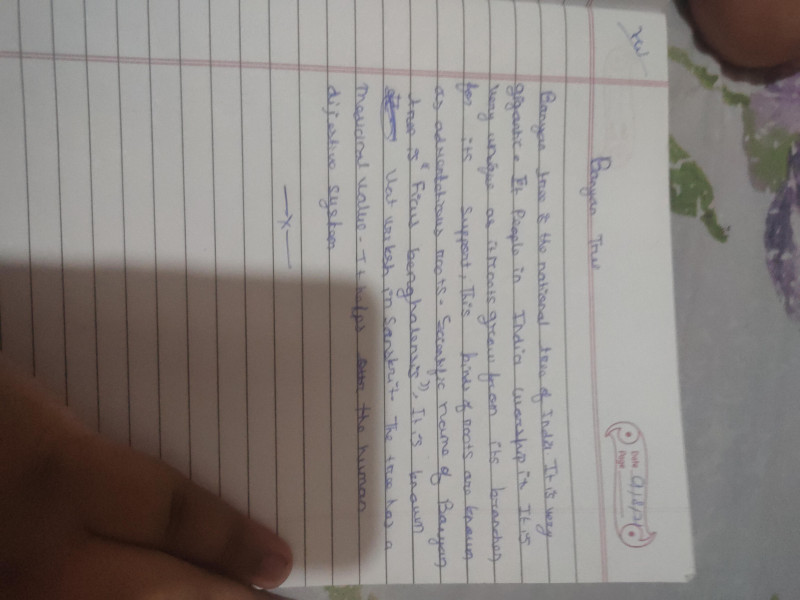 Date 9/8/21
Page
Banyan Tree
Banyan tree is the national tree of India. It is very
gigantic. People in India worship it. It is
very unique as it roots grow from its branches
for its support. This kind of roots are known
as adventatious roots. Scientific name of Banyan
tree is "Ficus benghalensis". It is known
Vat vriksh in Sanskrit. The tree has a
Medicinal value. It helps the human
digestive system
—x—